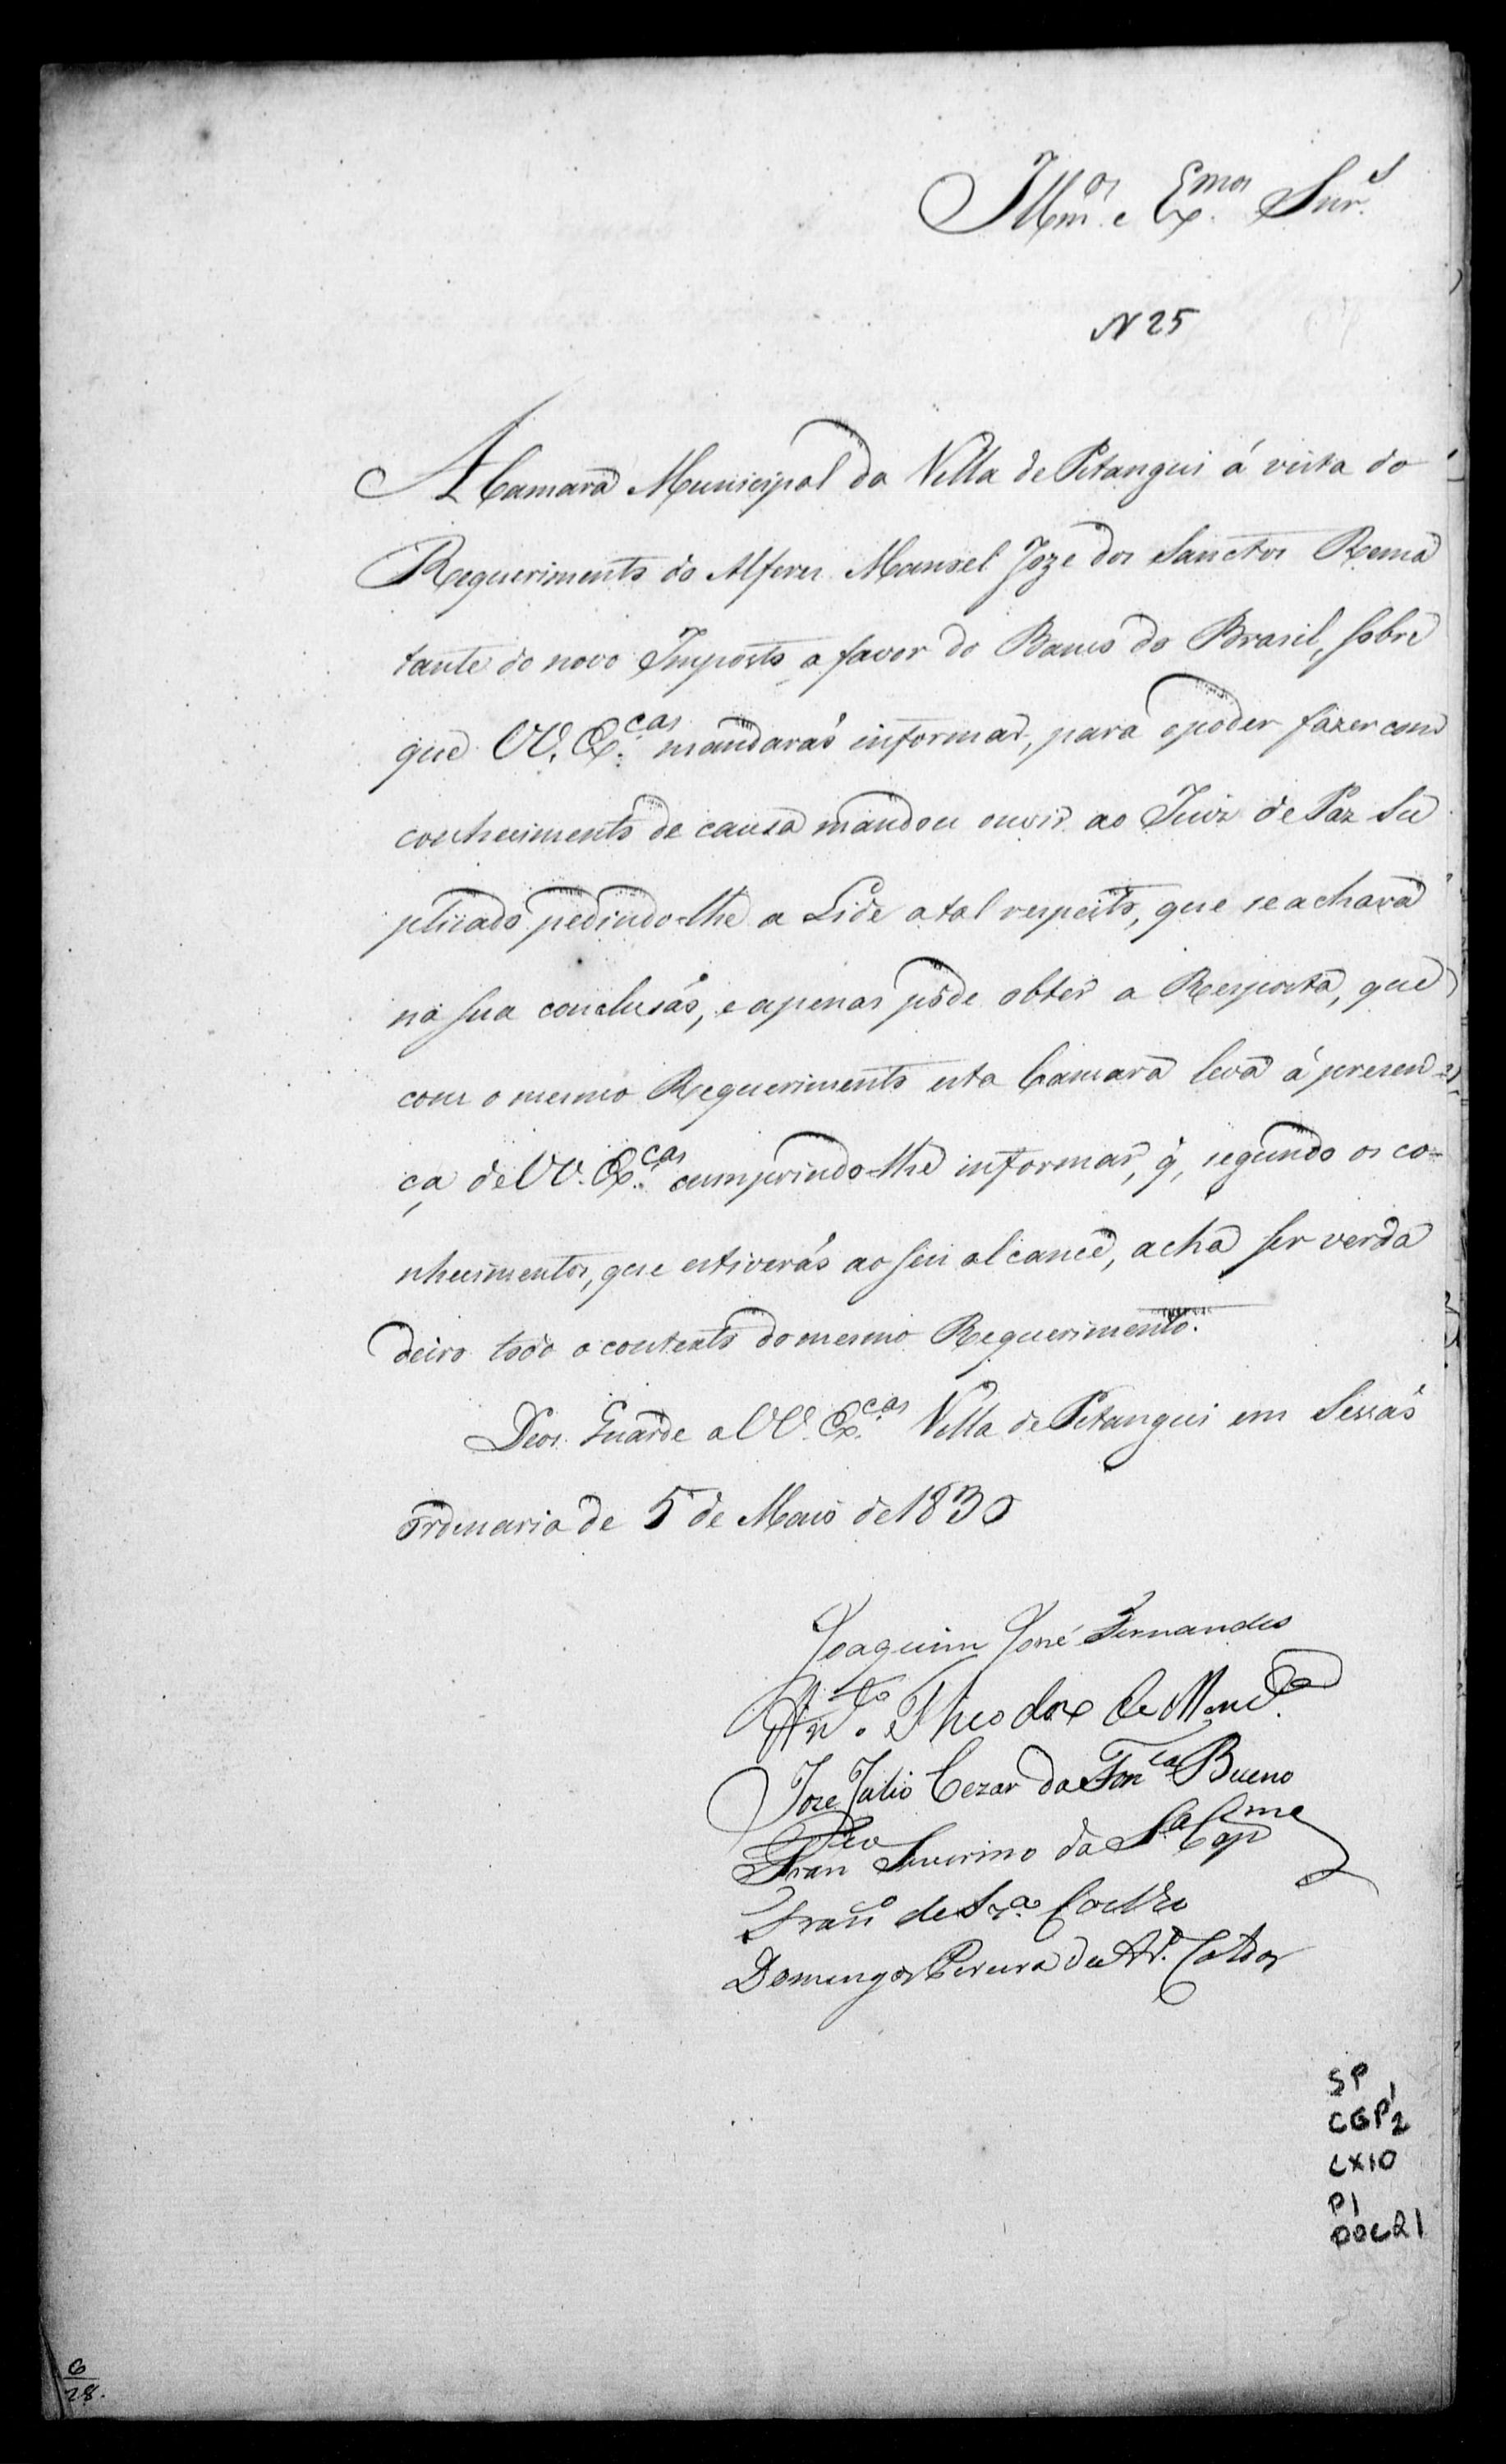 Illmos. e Exmos. Snrs.
N 25
A Camara Municipal da Villa de Pitangui á vista do
Requerimento do Alferes Manoel Joze dos Sanctos Rema
tante do novo Imposto a favor do Banco do Brasil, sobre
que VV. Ex.cas mandarás informar, para o poder fazer com
conhecimento de causa mandou ouvir ao Juiz de Paz Su
plicado pedindo-lhe a Lide a tal respeito, que se achava
na sua conclusás, e apenas pôde obter a Resposta, que
com o mesmo Requerimento esta Camara leva á presen
ça de VV. Ex.cas cumprindo-lhe informar, q̃, segundo os co-
nhecimentos, que estiverás ao seu alcance, acha ser verda
deiro todo o contexto do mesmo Requerimento.
Deos Guarde a VV. Ex.cas Villa de Pitangui em Sessás
ordinaria de 5 de Maio de 1830
Joaquim José Fernandes
An.to Theodoro de Mend.ca
Joze Julio Cezar da Fon.ca Bueno
Fran.co Severino da S.a
Fran.co de Sz.a Coelho
Domingos Pereira de
SP
CGP1/2
CX10
P1
DOC21
6
28.